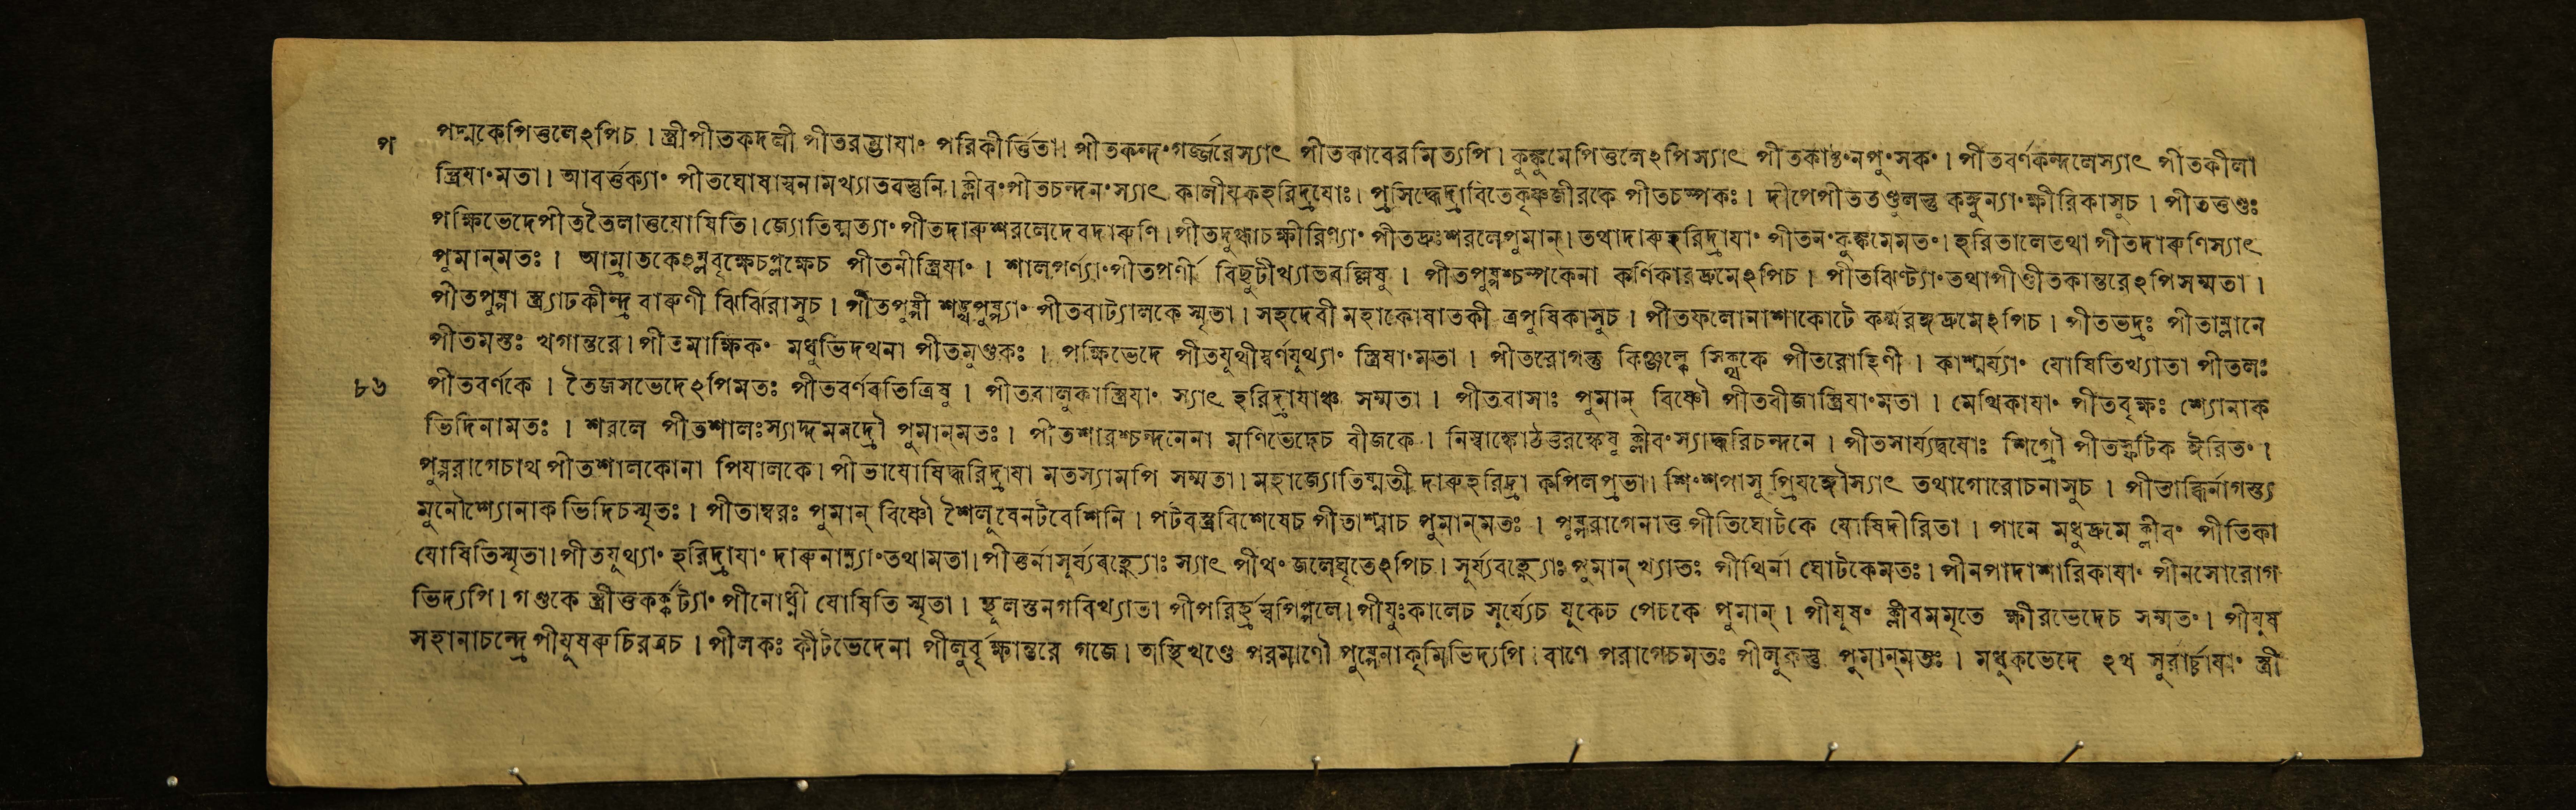 প পদ্মকেপিত্তলেঽপিচ । স্ত্রীপীতকদলী পীতরম্ভাযাং পরিকীর্ত্তিতা। পীতকন্দংগর্জ্জরেস্যাৎ পীতকাবেরমিত্যপি । কুঙ্কুমেপিত্তলেঽপিস্যাৎ পীতকাষ্ঠংনপুংসকং । পীতবর্ণকন্দলেস্যাৎ পীতকীলা
স্ত্রিযাংমতা । আবর্ত্তক্যাং পীতঘোষাস্বনামখ্যাতবস্তুনি । ক্লীবংপীতচন্দনংস্যাৎ কালীযকহরিদ্রযোঃ । প্রসিদ্ধেদ্রাবিতেকৃষ্ণজীরকে পীতচম্পকঃ । দীপেপীততণ্ডুলস্তু কঙ্গুন্যাংক্ষীরিকাসুচ । পীততুণ্ডঃ
পক্ষিভেদেপীততৈলাত্তযোষিতি । জ্যোতিষ্মত্যাং পীতদারুশরলেদেবদারুণি । পীতদুগ্ধাচক্ষীরিণ্যাং পীতদ্রুঃশরলেপুমান্ । তথাদারুহরিদ্রাযাং পীতনংকুঙ্কুমেমতং । হরিতালেতথা পীতদারুণিস্যাৎ
পুমান্মতঃ । আম্রাতকেঽম্লবৃক্ষেচপ্লক্ষেচ পীতনীস্ত্রিযাং । শালপর্ণ্যাংপীতপর্ণী বিছুটীখ্যাতবল্লিষু । পীতপুষ্পশ্চম্পকেনা কর্ণিকারদ্রুমেঽপিচ । পীতঝিণ্ট্যাংতথাপীণ্ডীতকান্তরেঽপিসম্মতা ।
পীতপুষ্পা স্ত্র্যাঢকীন্দ্র বারুণী ঝিঞ্ঝিরাসুচ । পীতপুষ্পী শঙ্খপুষ্প্যাং পীতবাট্যালকে স্মৃতা । সহদেবী মহাকোষাতকী ত্রপুষিকাসুচ । পীতফলোনাশাকোটে কর্ম্মরঙ্গদ্রুমেঽপিচ । পীতভদ্রঃ পীতাম্লানে
পীতমস্তঃ খগান্তরে । পীতমাক্ষিকং মধুভিদথনা পীতমুণ্ডকঃ । পক্ষিভেদে পীতযূথীস্বর্ণযূথ্যাং স্ত্রিযাংমতা । পীতরোগস্তু কিঞ্জল্কে সিক্থকে পীতরোহিণী । কাশ্মর্য্যাং যোষিতিখ্যাতা পীতলঃ
৮৬ পীতবর্ণকে । তৈজসভেদেঽপিমতঃ পীতবর্ণবতিত্রিষু । পীতবালুকাস্ত্রিযাং স্যাৎ হরিদ্রাযাঞ্চ সম্মতা । পীতবাসাঃ পুমান্ বিষ্ণৌ পীতবীজাস্ত্রিযাংমতা । মেথিকাযাং পীতবৃক্ষঃ শ্যোনাক
ভিদিনামতঃ । শরলে পীতশালঃস্যাদ্দমনদ্রৌ পুমান্মতঃ । পীতশারশ্চন্দনেনা মণিভেদেচ বীজকে । ক্লীবংস্যাদ্ধরিচন্দনে । পীতসার্য্যদ্বযোঃ শিগ্রৌ পীতস্ফটিক ঈরিতং ।
পুষ্পরাগেচাথ পীতশালকোনা পিযালকে । পীতাযোষিদ্ধরিদ্রাযা মতস্যামপি সম্মতা । মহাজ্যোতিষ্মতী দারুহরিদ্রা কপিলপ্রভা । শিংশপাসু প্রিযঙ্গৌস্যাৎ তথাগোরোচনাসুচ । পীতাব্ধির্নাগস্ত্য
মুনৌশ্যোনাক ভিদিচস্মৃতঃ । পীতাম্বরঃ পুমান্ বিষ্ণৌ শৈলূষেনটবেশিনি । পটবস্ত্রবিশেষেচ পীতাশ্মাচ পুমান্মতঃ । পুষ্পরাগেনাত্ত পীতিঘোটকে যোষিদীরিতা । পানে মধুদ্রুমে ক্লীবং পীতিকা
যোষিতিস্মৃতা । পীতযূথ্যাং হরিদ্রাযাং দারুনাম্ন্যাংতথামতা । পীত্তুর্নাসূর্য্যবহ্ন্যোঃ স্যাৎ পীথং জলেঘৃতেঽপিচ । সূর্য্যবহ্ন্যোঃ পুমান্ খ্যাতঃ পীথির্না ঘোটকেমতঃ । পীনপাদাশারিকাযাং পীনসোরোগ
ভিদ্যপি । গণ্ডকে স্ত্রীত্তকর্কট্যাং পীনোধ্নী যোষিতি স্মৃতা । স্থূলস্তনগবিখ্যাতা পীপরির্হ্রস্বপিপ্পলে । পীযুঃকালেচ সূর্য্যেচ যূকেচ পেচকে পুমান্ । পীযূষং ক্লীবমমৃতে ক্ষীরভেদেচ সম্মতং । পীযূষ
সহানাচন্দ্রে পীযূষরুচিরত্রচ । পীলকঃ কীটভেদেনা পীলুর্বৃক্ষান্তরে গজে । অস্থিখণ্ডে পরমাণৌ পুষ্পেনাকৃমিভিদ্যপি । বাণে পরাগেচমতঃ পীলুকস্তু পুমান্মতঃ । মধুকভেদে ঽথ সুরার্চ্চাযাং স্ত্রী